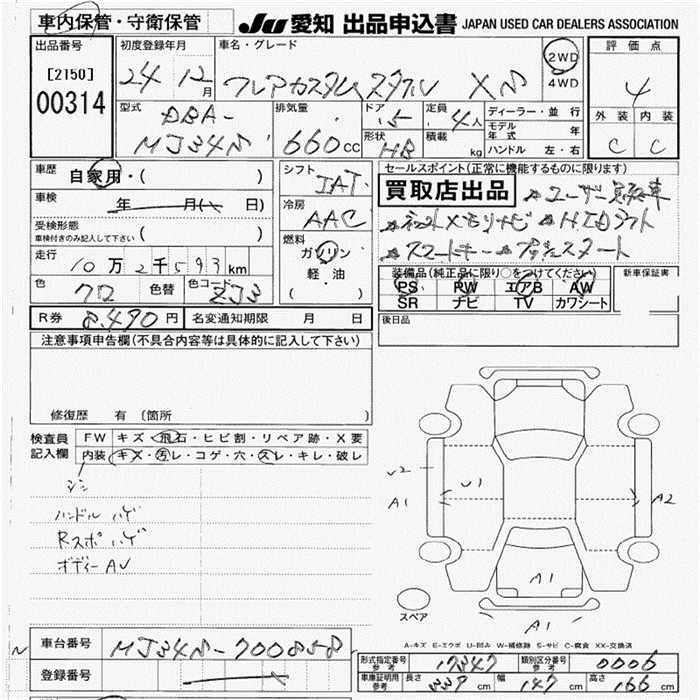 車内保管・守衛保管 JU 愛知 出品申込書 JAPAN USED CAR DEALERS ASSOCIATION
出品番号 初度登録年月 車名・グレード 評価点
[2150] 24年 12月 フレアカスタムスタイル XS 2WD 4
00314 4WD
型式 排気量 ドア 5 定員 4人 ディーラー・並行 外装 内装
DBA- モデル年式 年
MJ34S 660cc 形状 HB 積載 kg ハンドル 左・右 C C
車歴 自家用・( ) シフト IAT セールスポイント(正常に機能するものに限ります)
車検 年 月( 日) 冷房 AAC 買取店出品 ☆ユーザー買取車
受検形態 ( ) ☆ネットメモリナビ ☆HIDライト
車検付きのみ記入して下さい 燃料 ガソリン ☆スマートキー ☆プッシュスタート
走行 10万2千593km 軽・油 装備品(純正品に限り○をつけてください) 新車保証書
色 クロ 色替 色コード ZJ3 ( ) PS PW エアB AW
SR ナビ TV カワシート
R券 8,490円 名変通知期限 月 日 後日品
注意事項申告欄(不具合内容等は具体的に記入して下さい)
修復歴 有 (箇所 )
検査員 FW キズ・飛石・ヒビ割・リペア跡・X要
記入欄 内装 キズ・汚レ・コゲ・穴・スレ・キレ・破レ
シミ
ハンドル ハゲ
Rスポ ハゲ
ボディー AU
U2 U1
A1 A2
A1
スペア A1
A-キズ E-エクボ U-凹み W-補修跡 S-サビ C-腐食 XX-交換済
車台番号 MJ34S-700858
形式指定番号 参考 17347 類別区分番号 参考 0006
登録番号 車庫証明用 参考 長さ 339cm 幅 147cm 高さ 166cm